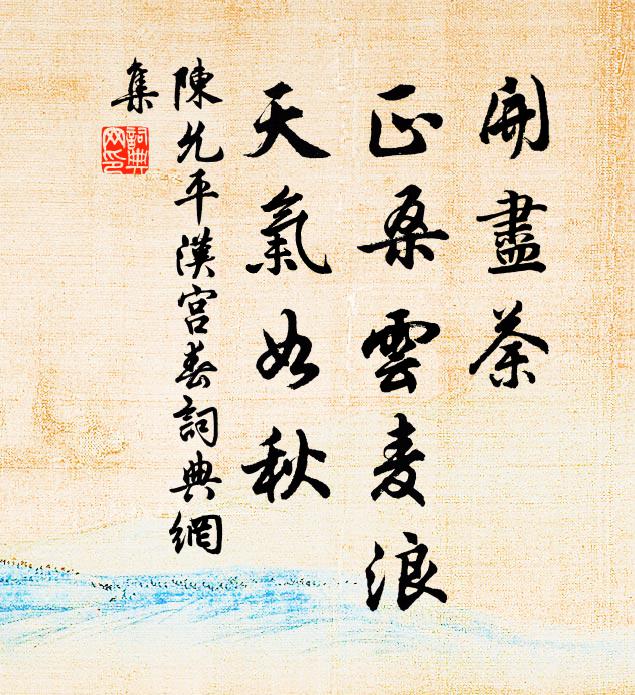 開盡荼
正桑雲麥浪
天氣如秋
陳允平漢宮春詞典網
集
詞典網印